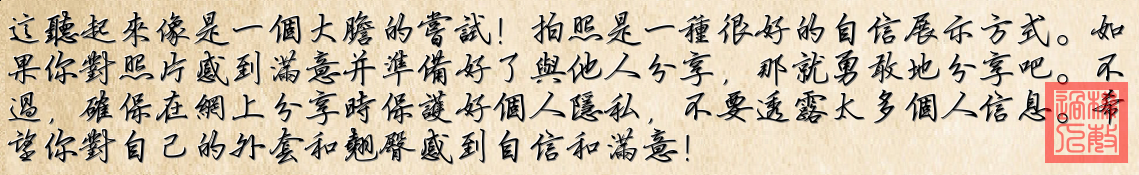 這聽起來像是一個大膽的嘗試！拍照是一種很好的自信展示方式。如
果你對照片感到滿意并準備好了與他人分享，那就勇敢地分享吧。不
過，確保在網上分享時保護好個人隱私，不要透露太多個人信息。希
望你對自己的外套和翹臀感到自信和滿意！